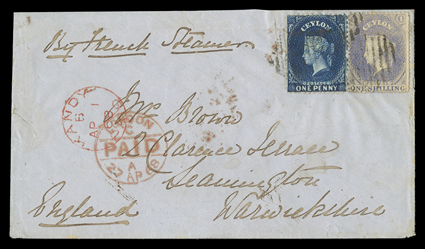 CEYLON CEYLON
POSTAGE
ONE PENNY ONE SHILLING
By French Steamer
KANDY
AP 1
61
LONDON
C
PAID
A
27 AP
Mrs Brown
Clarence Terrace
Leamington
England Warwickshire